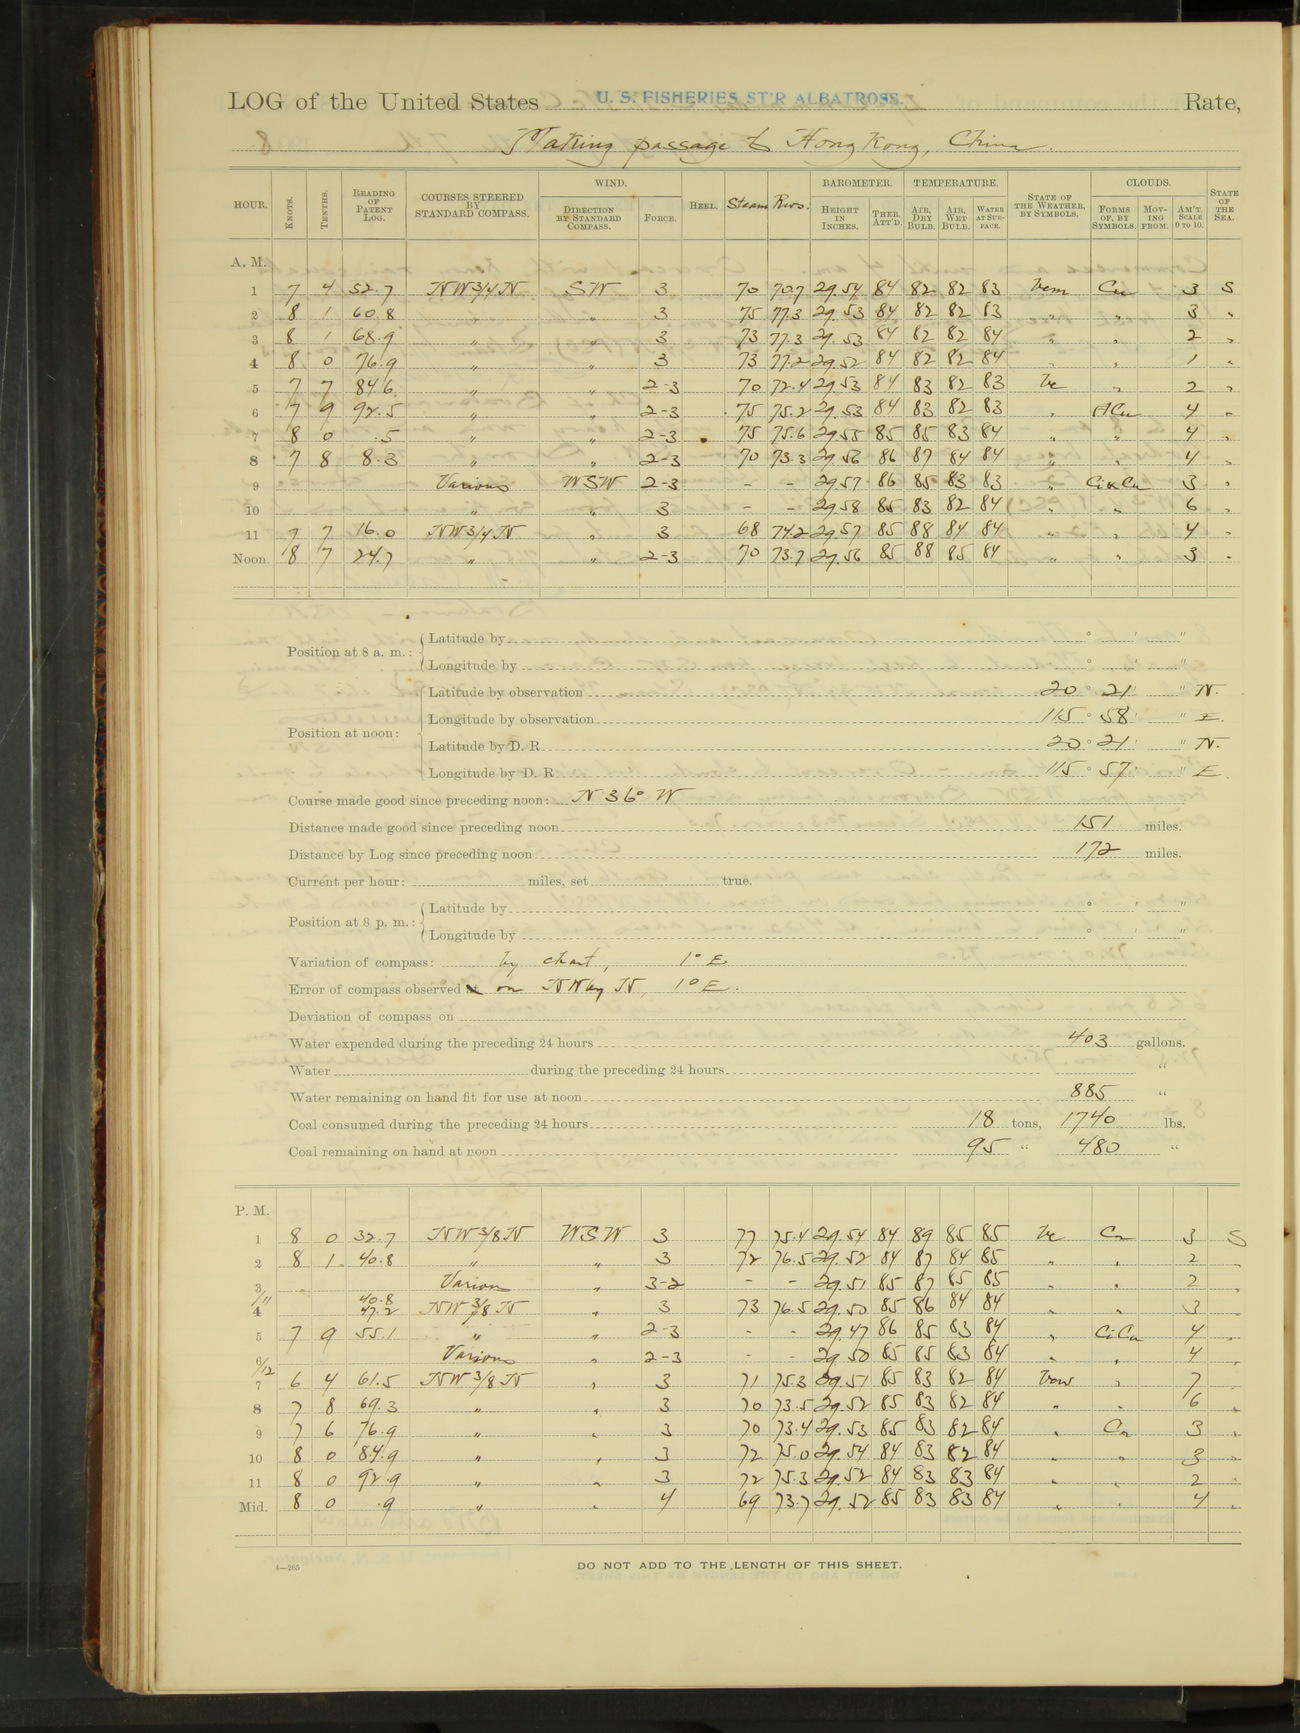 LOG of the United States U. S. FISHERIES ST'R ALBATROSS. Rate,
Making passage to Hong Kong, China.
HOUR. KNOTS. TENTHS. READING OF PATENT LOG. COURSES STEERED BY STANDARD COMPASS. WIND. DIRECTION BY STANDARD COMPASS. FORCE. HEEL. Steam Revs. BAROMETER. HEIGHT IN INCHES. THER. ATT'D. TEMPERATURE. AIR, DRY BULB. AIR, WET BULB. WATER AT SURFACE. STATE OF THE WEATHER, BY SYMBOLS. CLOUDS. FORMS OF, BY SYMBOLS. MOVING FROM. AM'T. SCALE 0 TO 10. STATE OF THE SEA.
A. M.
1 7 4 52.7 NW 3/4 N SW 3 70 70.7 29.54 84 82 82 83 Cu 3 S
2 8 1 60.8 " " 3 75 77.3 29.53 84 82 82 83 " " 3 "
3 8 1 68.9 " " 3 73 77.3 29.53 84 82 82 84 " " 2 "
4 8 0 76.9 " " 3 73 77.2 29.52 84 82 82 84 " " 1 "
5 7 7 84.6 " " 2-3 70 72.4 29.53 84 83 82 83 bc " 2 "
6 7 9 92.5 " " 2-3 75 75.2 29.53 84 83 82 83 " ACu 4 "
7 8 0 .5 " " 2-3 75 75.6 29.55 85 85 83 84 " " 4 "
8 7 8 8.3 " " 2-3 70 73.3 29.56 86 87 84 84 " " 4 "
9 Various WSW 2-3 - - 29.57 86 85 83 83 " Ci & Cu 3 "
10 " " 3 - - 29.58 85 83 82 84 " " 6 "
11 7 7 16.0 NW 3/4 N " 3 68 74.2 29.57 85 88 84 84 " " 4 "
Noon. 8 7 24.7 " " 2-3 70 73.7 29.56 85 88 85 84 " " 3 "
Position at 8 a. m.: Latitude by ° ' "
Longitude by ° ' "
Position at noon: Latitude by observation 20 ° 21 ' " N.
Longitude by observation 115 ° 58 ' " E.
Latitude by D. R. 20 ° 21 ' " N.
Longitude by D. R. 115 ° 57 ' " E.
Course made good since preceding noon: N 36° W
Distance made good since preceding noon 151 miles.
Distance by Log since preceding noon 172 miles.
Current per hour: miles, set true.
Position at 8 p. m.: Latitude by ° ' "
Longitude by ° ' "
Variation of compass: by chart, 1° E.
Error of compass observed on N, 1° E.
Deviation of compass on
Water expended during the preceding 24 hours 403 gallons.
Water during the preceding 24 hours "
Water remaining on hand fit for use at noon 885 "
Coal consumed during the preceding 24 hours 18 tons, 1740 lbs.
Coal remaining on hand at noon 95 " 480 "
P. M.
1 8 0 32.7 NW 3/8 N WSW 3 77 75.4 29.54 84 89 85 85 bc Cu 3 S
2 8 1 40.8 " " 3 72 76.5 29.52 84 87 84 85 " " 2 "
3 Various " 3-2 - - 29.51 85 87 85 85 " " 2 "
/11 40.8
4 47.2 NW 3/8 N " 3 73 76.5 29.50 85 86 84 84 " " 3 "
5 7 9 55.1 " " 2-3 - - 29.47 86 85 83 84 " CiCu 4 "
6/12 Various " 2-3 - - 29.50 85 85 83 84 " " 4 "
7 6 4 61.5 NW 3/8 N " 3 71 75.3 29.51 85 83 82 84 " 7 "
8 7 8 69.3 " " 3 70 73.5 29.52 85 83 82 84 " " 6 "
9 7 6 76.9 " " 3 70 73.4 29.53 85 83 82 84 " Cu 3 "
10 8 0 84.9 " " 3 72 75.0 29.54 84 83 82 84 " " 3 "
11 8 0 92.9 " " 3 72 75.3 29.52 84 83 83 84 " " 2 "
Mid. 8 0 .9 " " 4 69 73.7 29.52 85 83 83 84 " " 4 "
4—265
DO NOT ADD TO THE LENGTH OF THIS SHEET.